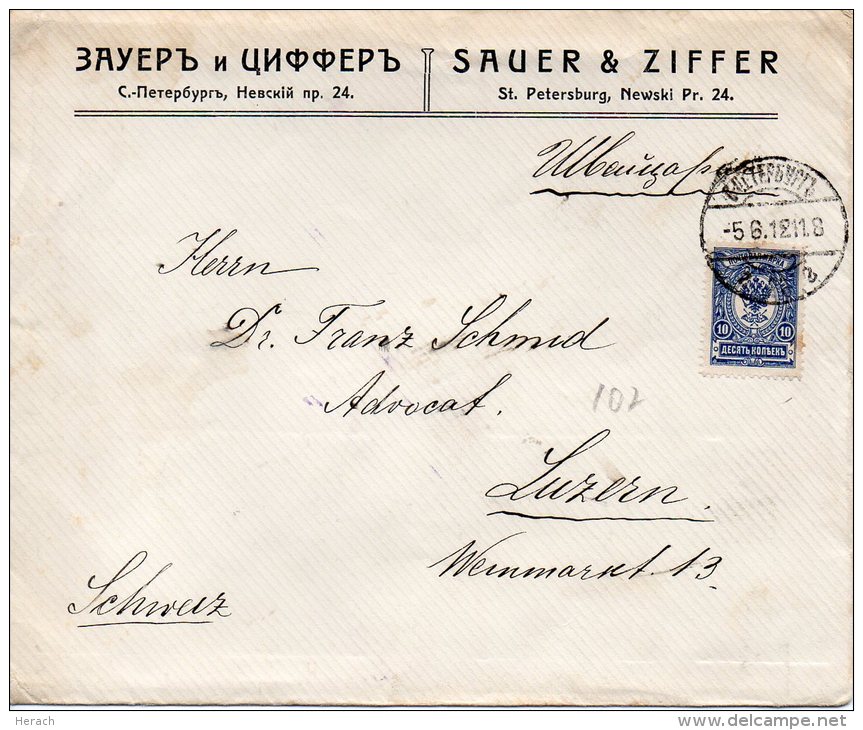 ЗАУЕРЪ и ЦИФФЕРЪ
С.-Петербургъ, Невскій пр. 24.
SAUER & ZIFFER
St. Petersburg, Newski Pr. 24.
Швейцарія
С.ПЕТЕРБУРГЪ
-5 6.12 11.8
ПОЧТОВАЯ МАРКА
10 10
ДЕСЯТЬ КОПѢЕКЪ
Herrn
Dr. Franz Schmid
Advocat.
102
Luzern.
Weinmarkt 13
Schweiz
Herach
delcampe.net